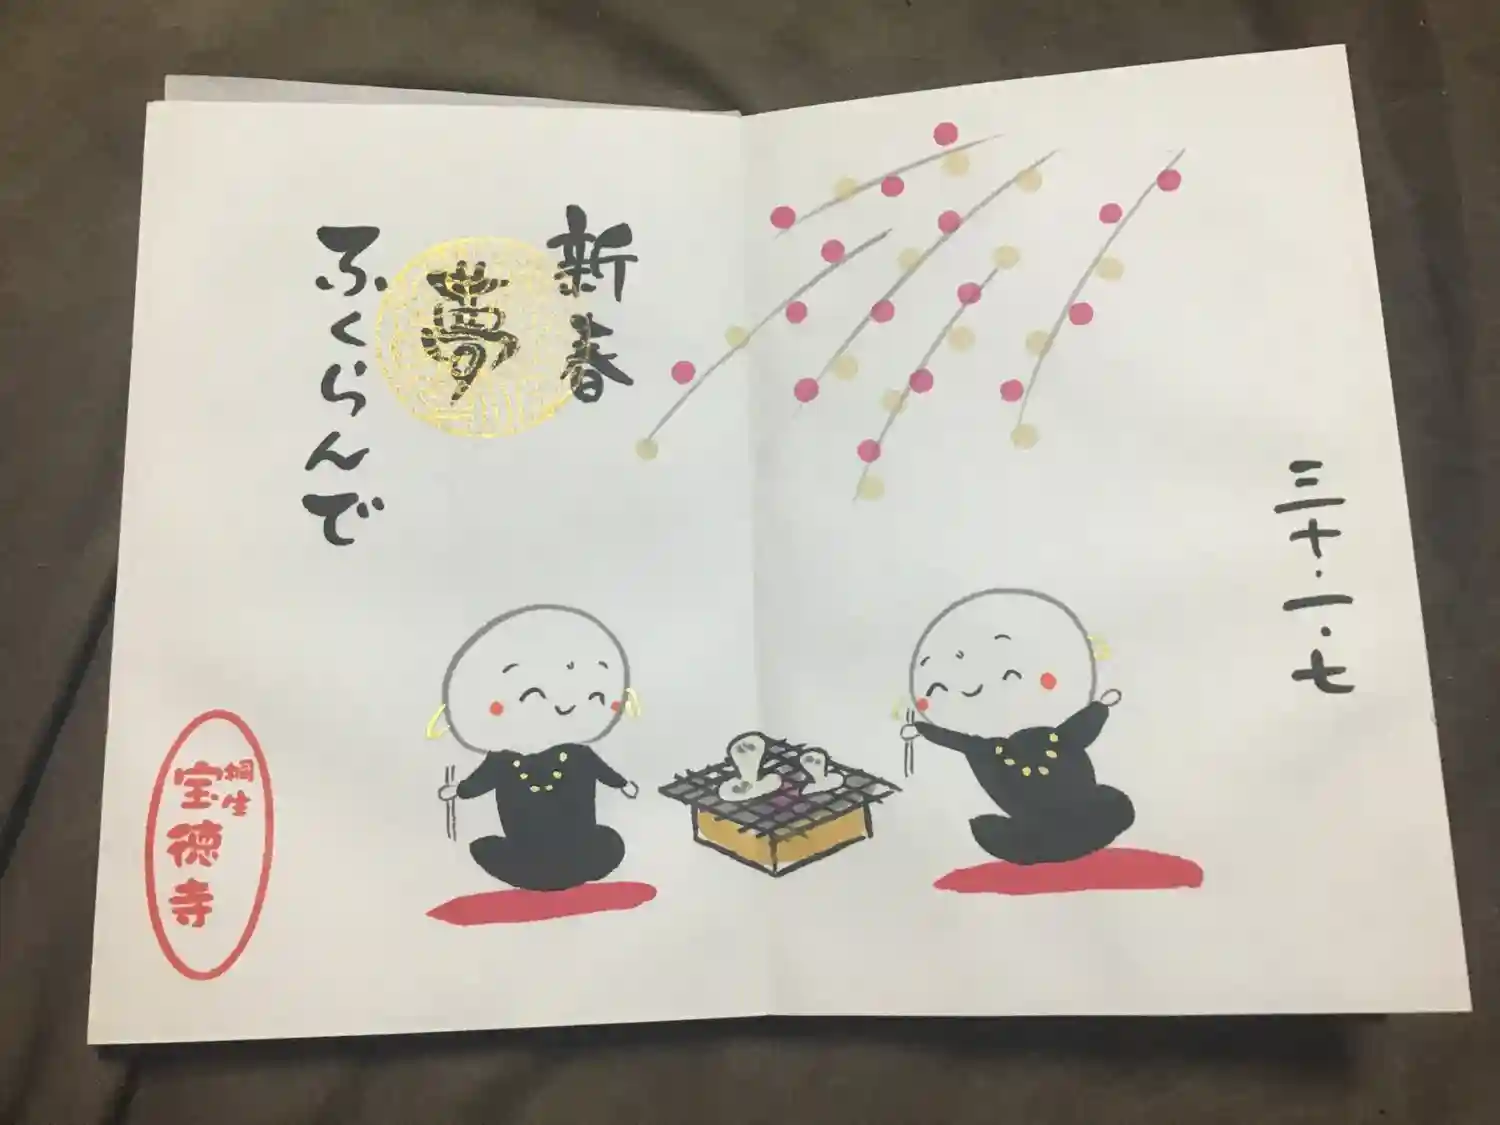 三十・一・七
新春
夢
ふくらんで
桐生
宝徳寺